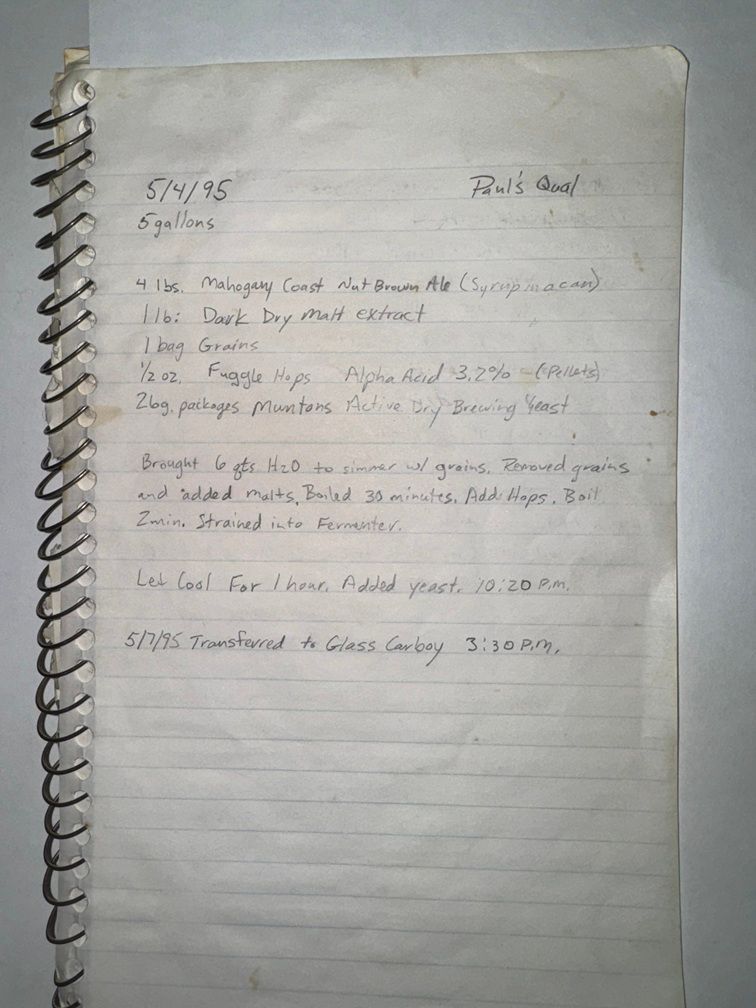 5/4/95 Paul's Qual
5 gallons
4 lbs. Mahogany Coast Nut Brown Ale (Syrup in a can)
1 lb: Dark Dry Malt extract
1 bag Grains
1/2 oz. Fuggle Hops Alpha Acid 3.2% - (Pellets)
2 6g. packages Muntons Active Dry Brewing Yeast
Brought 6 qts H2O to simmer w/ grains. Removed grains
and added malts. Boiled 30 minutes. Add Hops. Boil
2min. Strained into Fermenter.
Let Cool For 1 hour. Added yeast. 10:20 P.M.
5/7/95 Transferred to Glass Carboy 3:30 P.M.